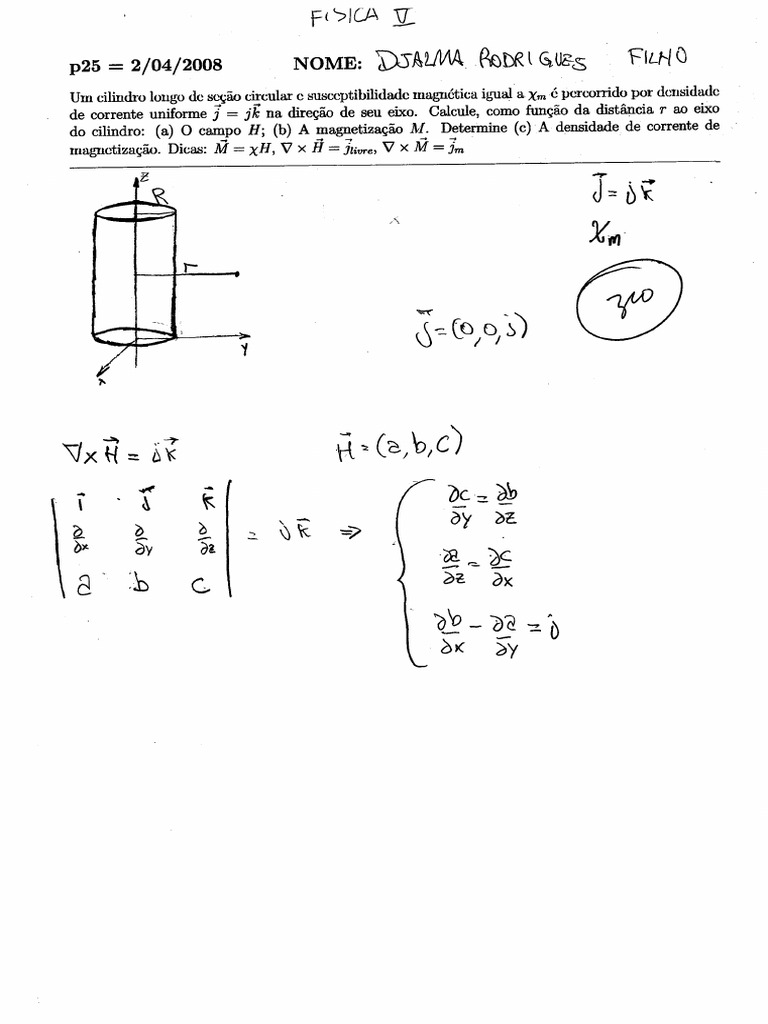 FISICA V
p25 = 2/04/2008 NOME: DJALMA RODRIGUES FILHO
Um cilindro longo de seção circular e susceptibilidade magnética igual a χₘ é percorrido por densidade
de corrente uniforme j⃗ = jk⃗ na direção de seu eixo. Calcule, como função da distância r ao eixo
do cilindro: (a) O campo H; (b) A magnetização M. Determine (c) A densidade de corrente de
magnetização. Dicas: M⃗ = χH, ∇ × H⃗ = j⃗livre, ∇ × M⃗ = j⃗m
z
R
r
y
x
J⃗ = jk⃗
χm
j⃗ = (0,0,j)
∇×H⃗ = jk⃗
H⃗ = (a,b,c)
| i⃗ j⃗ k⃗ |
| ∂/∂x ∂/∂y ∂/∂z | = jk⃗ ⇒
| a b c |
∂c/∂y = ∂b/∂z
∂a/∂z = ∂c/∂x
∂b/∂x − ∂a/∂y = j